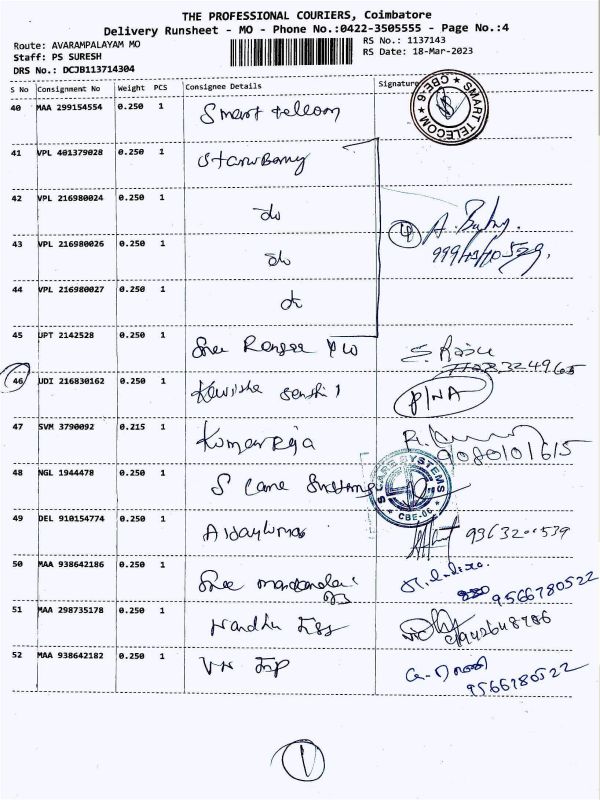 THE PROFESSIONAL COURIERS, Coimbatore
Delivery Runsheet - MO - Phone No.:0422-3505555 - Page No.:4
Route: AVARAMPALAYAM MO
RS No.: 1137143
Staff: PS SURESH
RS Date: 18-Mar-2023
DRS No.: DCJB113714304
S No Consignment No Weight PCS Consignee Details Signature
40 MAA 299154554 0.250 1 Smart telecom
SMART TELECOM ★ CBE-6 ★
41 VPL 401379028 0.250 1
42 VPL 216980024 0.250 1 do
4
43 VPL 216980026 0.250 1 do
44 VPL 216980027 0.250 1 do
45 UPT 2142528 0.250 1 Sree
46 UDI 216830162 0.250 1
P/NA
47 SVM 3790092 0.215 1 Kumar Raja
9080101615
48 NGL 1944478 0.250 1 S
SYSTEMS ★ CBE-06 ★
49 DEL 910154774 0.250 1
50 MAA 938642186 0.250 1 Sree
9566780522
51 MAA 298735178 0.250 1 Nandhu
52 MAA 938642182 0.250 1 VN
9566780522